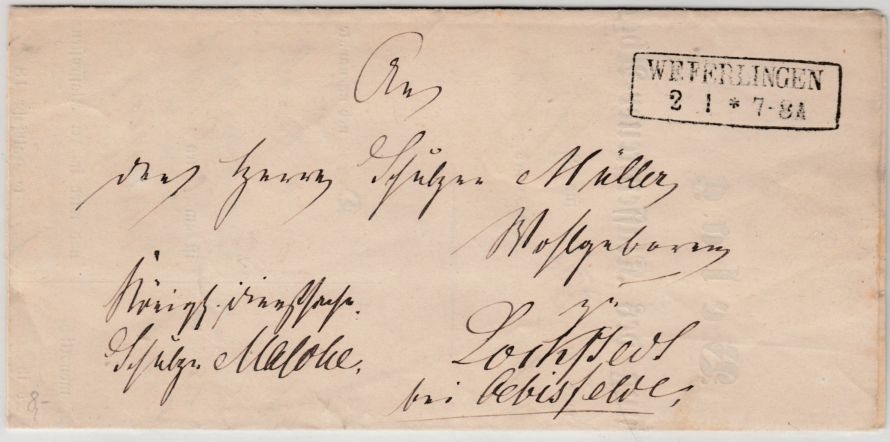 WEFERLINGEN
2 1 * 7-8A
An
den Herrn Schulzen Müller
Wohlgeboren
zu
Lockstedt
bei Oebisfelde.
Königl. Dienstsache.
Schulze
8,-